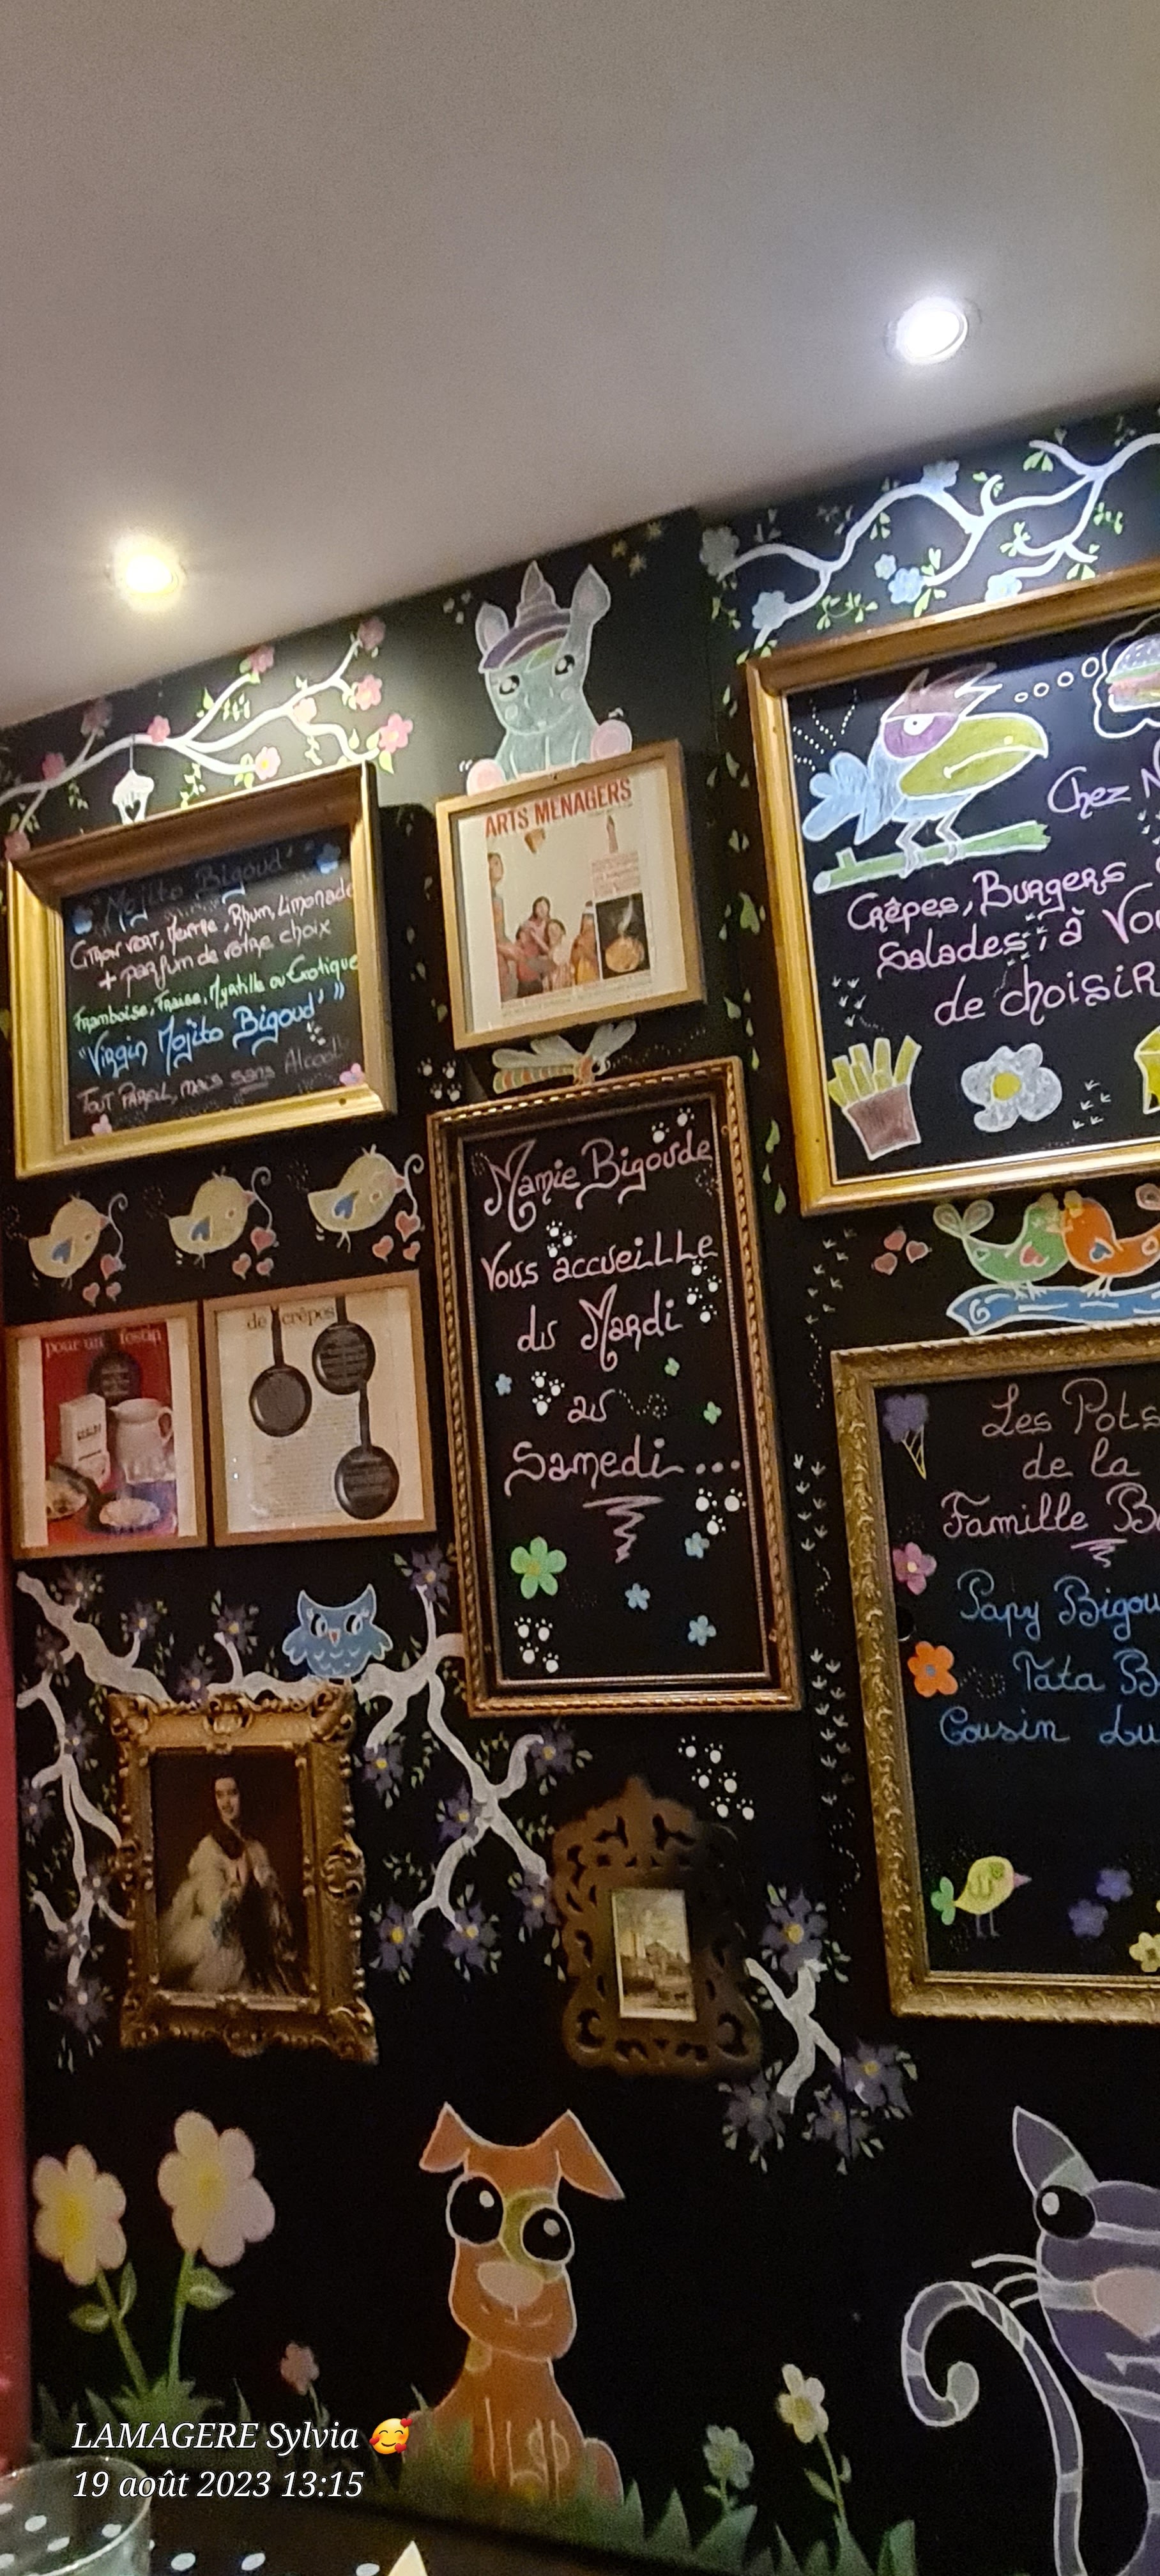 "Mojito Bigoud'"
Citron vert, Menthe, Rhum, Limonade
+ parfum de votre choix
Framboise, Fraise, Myrtille ou Exotique
"Virgin Mojito Bigoud'"
Tout Pareil, mais sans Alcool!
ARTS MENAGERS
Chez
Crêpes, Burgers
Salades, à Vou
de choisir
pour un festin
de crêpes
Mamie Bigoude
Vous accueille
du Mardi
au
Samedi...
Les Pots
de la
Famille B
Papy Bigou
Tata B
Cousin Lu
LAMAGERE Sylvia 🥰
19 août 2023 13:15